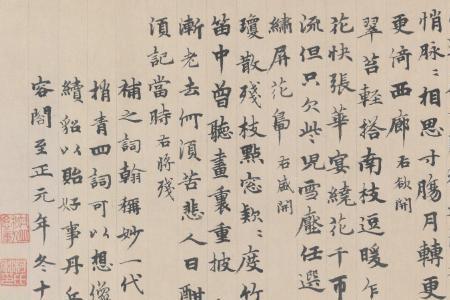 悄脉〻相思寸腸月轉更
更倚西廊 右欲開
翠苔輕搭南枝逗暖乍
花快張華宴繞花千帀
流但只欠些兒雪壓任選
繡屏花鳧 右盛開
瓊散殘枝點窓款〻度竹
笛中曾聽畫裏重披
漸老去何須苦悲人日酣
須記當時 右將殘
補之詞翰稱妙一代
梢青四詞可以想
續貂以貽好事丹丘
容閣至正元年冬十